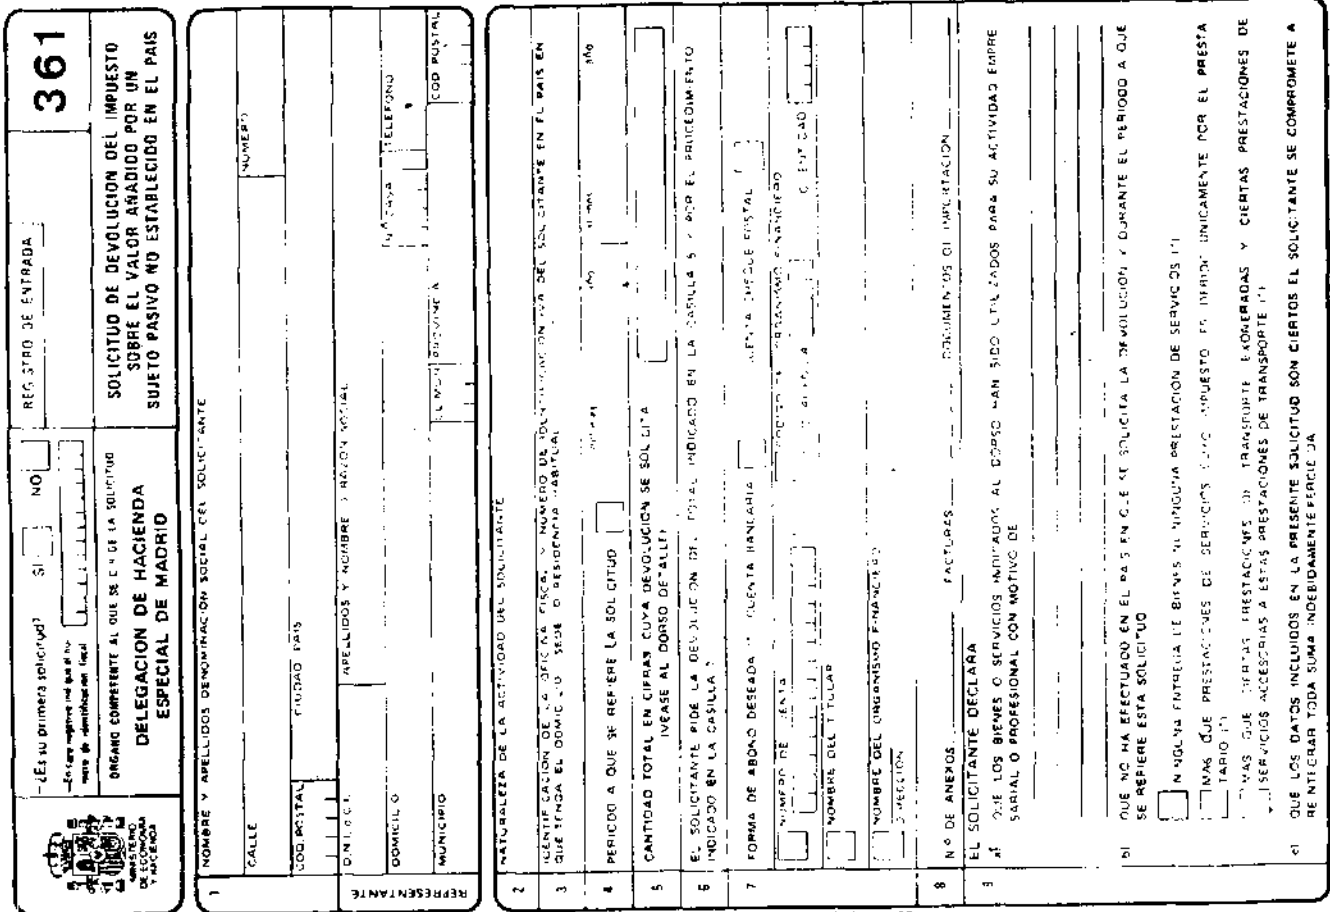 MINISTERIO
DE ECONOMIA
Y HACIENDA
-¿Es su primera solicitud? SI NO
REGISTRO DE ENTRADA
361
ORGANO COMPETENTE AL QUE SE DIRIGE LA SOLICITUD
DELEGACION DE HACIENDA
ESPECIAL DE MADRID
SOLICITUD DE DEVOLUCION DEL IMPUESTO
SOBRE EL VALOR AÑADIDO POR UN
SUJETO PASIVO NO ESTABLECIDO EN EL PAIS
1
NOMBRE Y APELLIDOS DENOMINACION SOCIAL DEL SOLICITANTE
CALLE
NUMERO
COD. POSTAL
CIUDAD PAIS
REPRESENTANTE
D.N.I. o C.I.
APELLIDOS Y NOMBRE O RAZON SOCIAL
DOMICILIO
TELEFONO
MUNICIPIO
PROVINCIA
COD POSTAL
2
NATURALEZA DE LA ACTIVIDAD DEL SOLICITANTE
3
IDENTIFICACION DE LA OFICINA FISCAL Y NUMERO DE IDENTIFICACION IVA DEL SOLICITANTE EN EL PAIS EN
QUE TENGA EL DOMICILIO SEDE O RESIDENCIA HABITUAL
4
PERIODO A QUE SE REFIERE LA SOLICITUD
año
año
5
CANTIDAD TOTAL EN CIFRAS CUYA DEVOLUCION SE SOLICITA
(VEASE AL DORSO DETALLE)
6
EL SOLICITANTE PIDE LA DEVOLUCION DEL TOTAL INDICADO EN LA CASILLA 5 Y POR EL PROCEDIMIENTO
INDICADO EN LA CASILLA 7
7
FORMA DE ABONO DESEADA CUENTA BANCARIA CUENTA CHEQUE POSTAL
NUMERO DE CUENTA
NOMBRE DEL TITULAR
NOMBRE DEL ORGANISMO FINANCIERO
DIRECCION
8
Nº DE ANEXOS FACTURAS DOCUMENTOS DE IMPORTACION
9
EL SOLICITANTE DECLARA
a)
QUE LOS BIENES O SERVICIOS INDICADOS AL DORSO HAN SIDO UTILIZADOS PARA SU ACTIVIDAD EMPRE
SARIAL O PROFESIONAL CON MOTIVO DE
b)
QUE NO HA EFECTUADO EN EL PAIS EN QUE SE SOLICITA LA DEVOLUCION Y DURANTE EL PERIODO A QUE
SE REFIERE ESTA SOLICITUD
NINGUNA ENTREGA DE BIENES NI NINGUNA PRESTACION DE SERVICIOS
MAS QUE PRESTACIONES DE SERVICIOS CUYO IMPUESTO ES DEBIDO UNICAMENTE POR EL PRESTA
TARIO
MAS QUE CIERTAS PRESTACIONES DE TRANSPORTE EXONERADAS Y CIERTAS PRESTACIONES DE
SERVICIOS ACCESORIAS A ESTAS PRESTACIONES DE TRANSPORTE
c)
QUE LOS DATOS INCLUIDOS EN LA PRESENTE SOLICITUD SON CIERTOS EL SOLICITANTE SE COMPROMETE A
REINTEGRAR TODA SUMA INDEBIDAMENTE PERCIBIDA